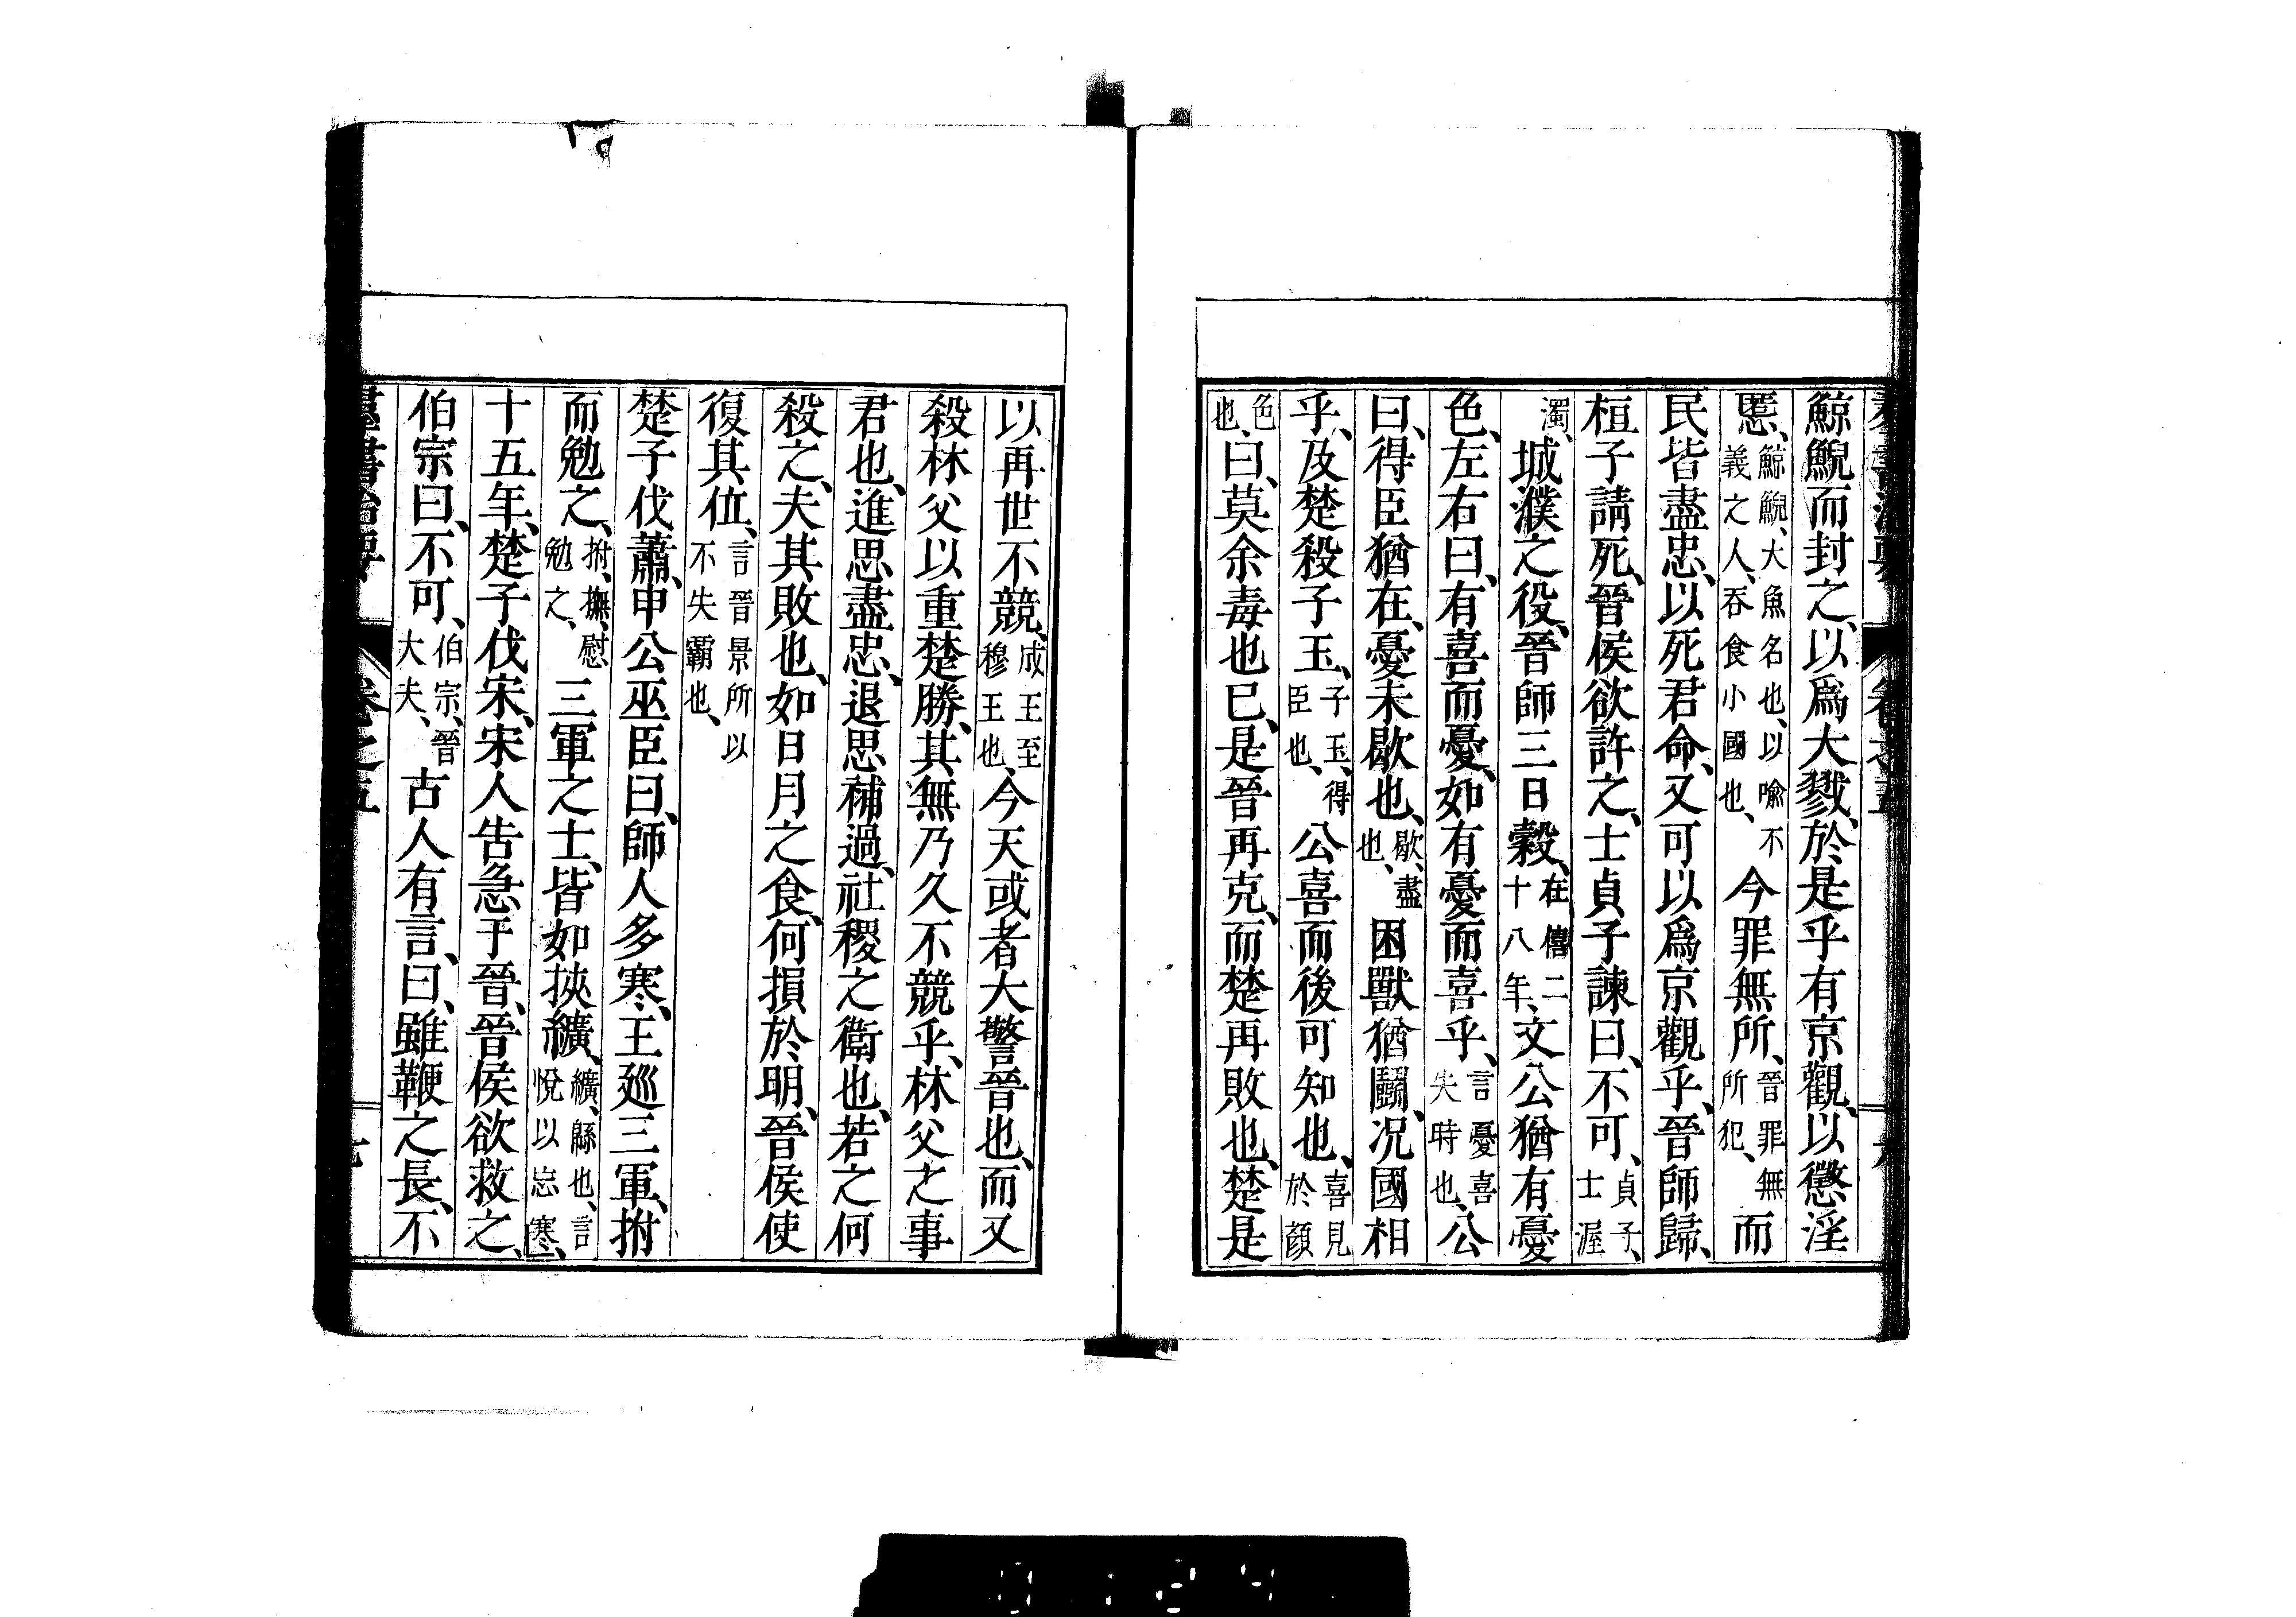 鯨鯢而封之、以爲大戮、於是乎有京觀、以懲淫
慝、鯨鯢、大魚名也、以喩不義之人、吞食小國也、今罪無所、晉罪無所犯、而
民皆盡忠、以死君命、又可以爲京觀乎、晉師歸、
桓子請死、晉侯欲許之、士貞子諫曰、不可、貞子、士渥
濁、城濮之役、晉師三日穀、在僖二十八年、文公猶有憂
色、左右曰、有喜而憂、如有憂而喜乎、言憂喜失時也、公
曰、得臣猶在、憂未歇也、歇、盡也、困獸猶鬭、况國相
乎、及楚殺子玉、子玉、得臣也、公喜而後可知也、喜見於顔
色也、曰、莫余毒也已、是晉再克、而楚再敗也、楚是
以再世不競、成王至穆王也、今天或者大警晉也、而又
殺林父以重楚勝、其無乃久不競乎、林父之事
君也、進思盡忠、退思補過、社稷之衞也、若之何
殺之、夫其敗也、如日月之食、何損於明、晉侯使
復其位、言晉景所以不失霸也、
楚子伐蕭、申公巫臣曰、師人多寒、王廵三軍、拊
而勉之、拊、撫慰勉之、三軍之士、皆如挾纊、纊、緜也、言悅以忘寒、
十五年、楚子伐宋、宋人告急于晉、晉侯欲救之、
伯宗曰、不可、伯宗、晉大夫、古人有言、曰、雖鞭之長、不
羣書治要 卷之五